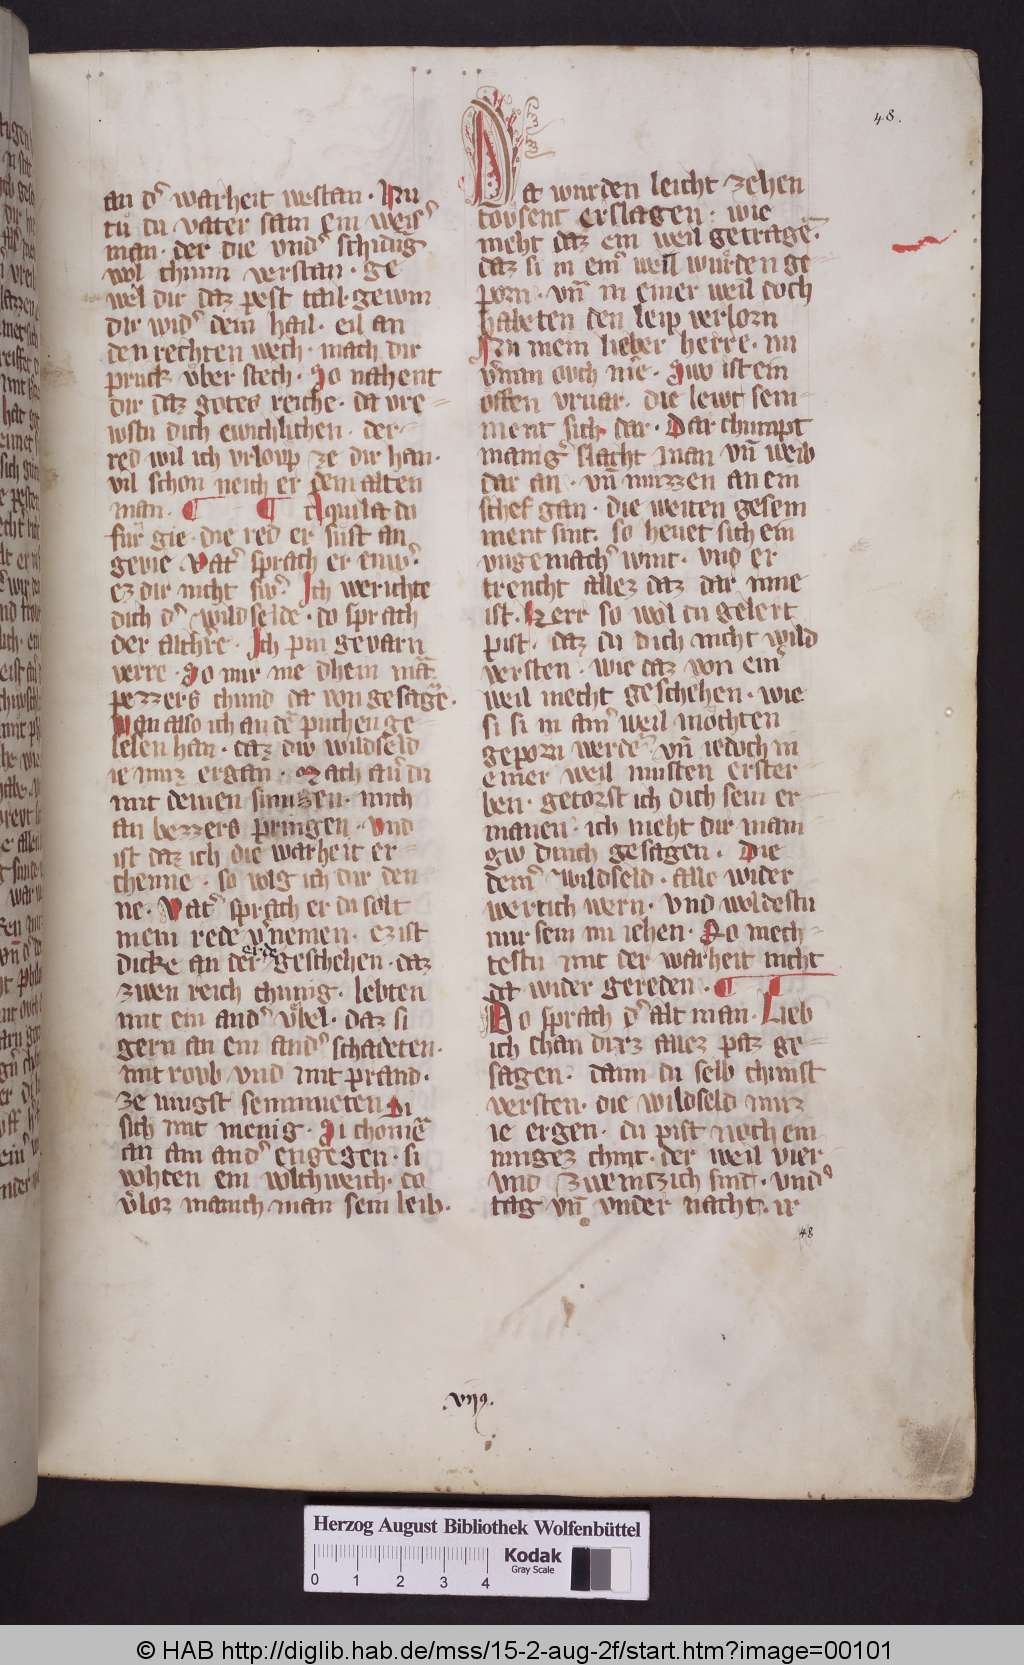 48.
an dˢ warheit westan · Nu
tů du vater sam ein weisˢ
man · der die vndˢ schidūg
wol chunn verstan · ge
wel dir daz pest tail · gewin
dir widˢ dem hail · eil an
den rechten wech · mach dir
pruck vͤber stech · So nahent
dir daz gotes reiche · da vre
wstu dich ewichlichen · der
red wil ich vrloup ze dir han ·
vil schon neich er dem alten
man · ¶ ¶ Aquila du
fuͤr gie · die red er sust an
gevie · Vatˢ sprach er enwˢ
ez dir nicht swˢ · Ich werichte
dich dˢ wildselde · do sprach
der althˢre · Ich pin gevarn
verre · So mir nie dhein mā
pezzers chund da von gesagē ·
Wan also ich an dē puchen ge
lesen han · daz div wildseld
ie muz ergan · Mach auˢ du
mit deinen sinnen · mich
an bezzers pringen · Vnd
ist daz ich die warheit er
chenne · so volg ich dir den
ne · Vatˢ sprach er du solt
mein rede vˢnemen · ez ist
dicke an der erde geschehen · daz
zwen reich chunig · lebten
mit ein andˢ vͤbel · daz si
gern an ein andˢ schadeten ·
mit roub vnd mit prand ·
ze iungst semmueten si
sich mit menig · Si chomē
an ain andˢ engegen · si
vohten ein volchweich · do
vˢloz manich man sein leib ·
Da wurden leicht zehen
tovsent erslagen : wie
meht daz ein weil getragē ·
daz si in einˢ weil wurden ge
porn · vn̄ in einer weil doch
habeten den leip verlorn
Nu mein lieber herre · nu
vˢnim ovch mēˢ · Swo ist ein
offen vruar · die lewt sem
ment sich dar · Dar chumpt
manigˢ slacht man vn̄ weib
dar an · vn̄ muzzen an ein
schef gan · die weiten gesem
ment sint · so hevet sich ein
vngemachˢ wint · vnd er
trencht allez daz dar inne
ist · Herr so wol du gelert
pist · daz du dich nicht wild
versten · wie daz von einˢ
weil mecht geschehen · wie
si si in ainˢ weil möchten
geporn werdē · vn̄ iedoch in
einer weil musten erster
ben · getorst ich dich sein er
manen · ich meht dir mani
gw dinch gesagen · Die
deinˢ wildseld · alle wider
wertich wern · vnd woldestu
mir sein nu iehen · So mech
testu mit der warheit nicht
da wider gereden · ¶ ¶
Do sprach dˢ alt man · Lieb
ich chan dirz allez paz ge
sagen · dann du selb chunst
versten · die wildseld muz
ie ergen · du pist noch ein
iungez chint · der weil vier
vnd zweintzich sint · vndˢ
tag vn̄ vnder nacht · ir
48
Herzog August Bibliothek Wolfenbüttel
0 1 2 3 4
Kodak
Gray Scale
© HAB http://diglib.hab.de/mss/15-2-aug-2f/start.htm?image=00101